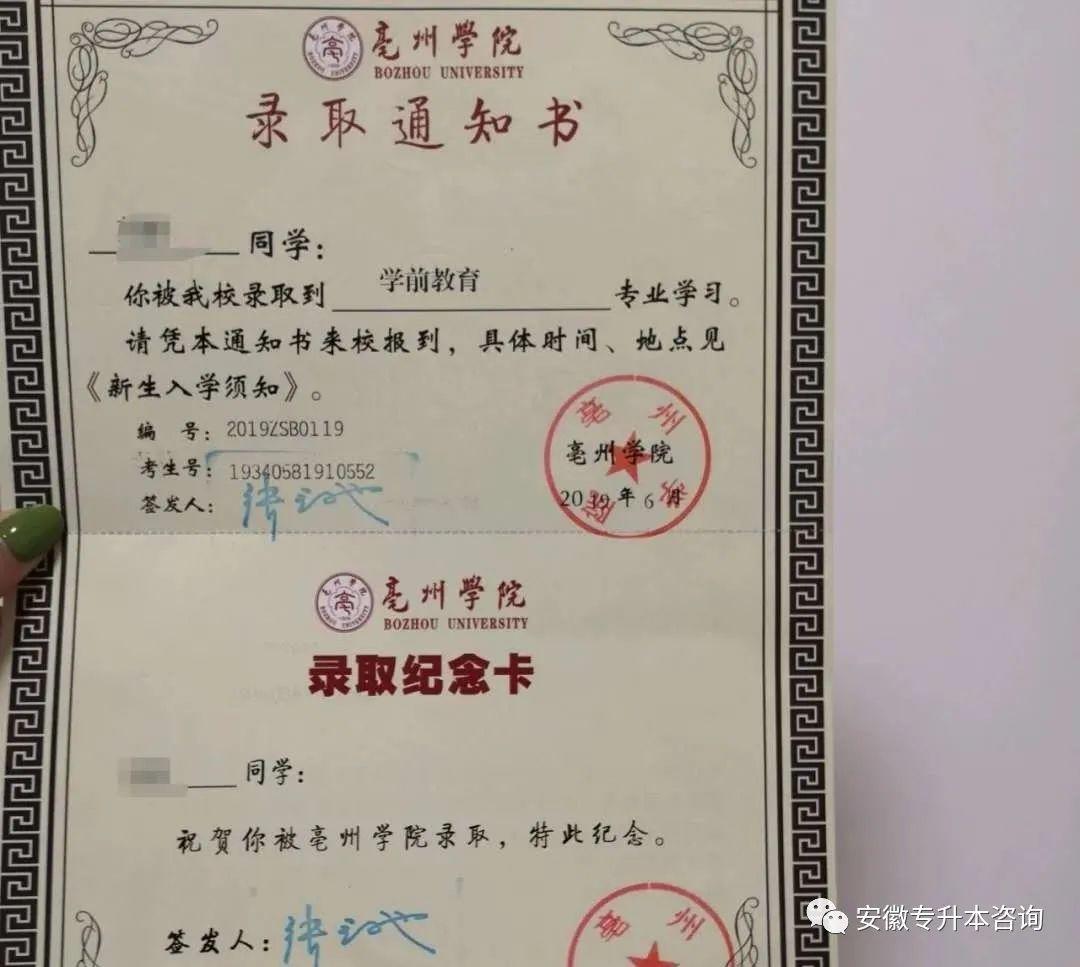 亳州學院
BOZHOU UNIVERSITY
录取通知书
同学：
你被我校录取到 学前教育 专业学习。
请凭本通知书来校报到，具体时间、地点见
《新生入学须知》。
编 号：2019ZSB0119
考生号：19340581910552
签发人：
亳州学院
亳州学院
2019年6月
亳州學院
BOZHOU UNIVERSITY
录取纪念卡
同学：
祝贺你被亳州学院录取，特此纪念。
签发人：
亳州
安徽专升本咨询